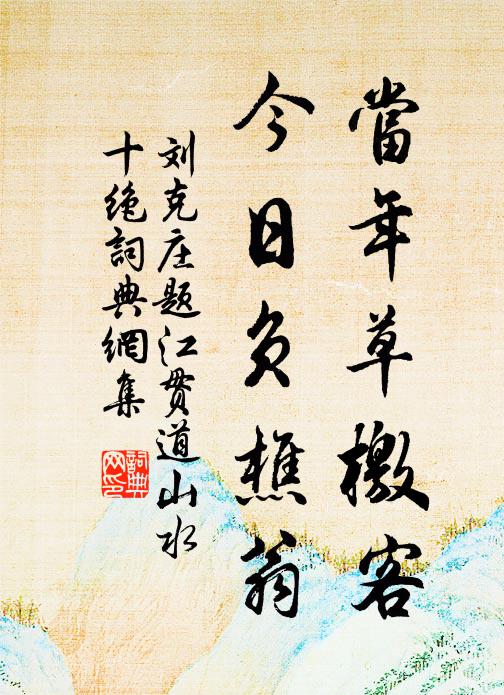 當年草檄客
今日負樵翁
刘克庄题江贯道山水
十絶詞典網集
詞典
网印